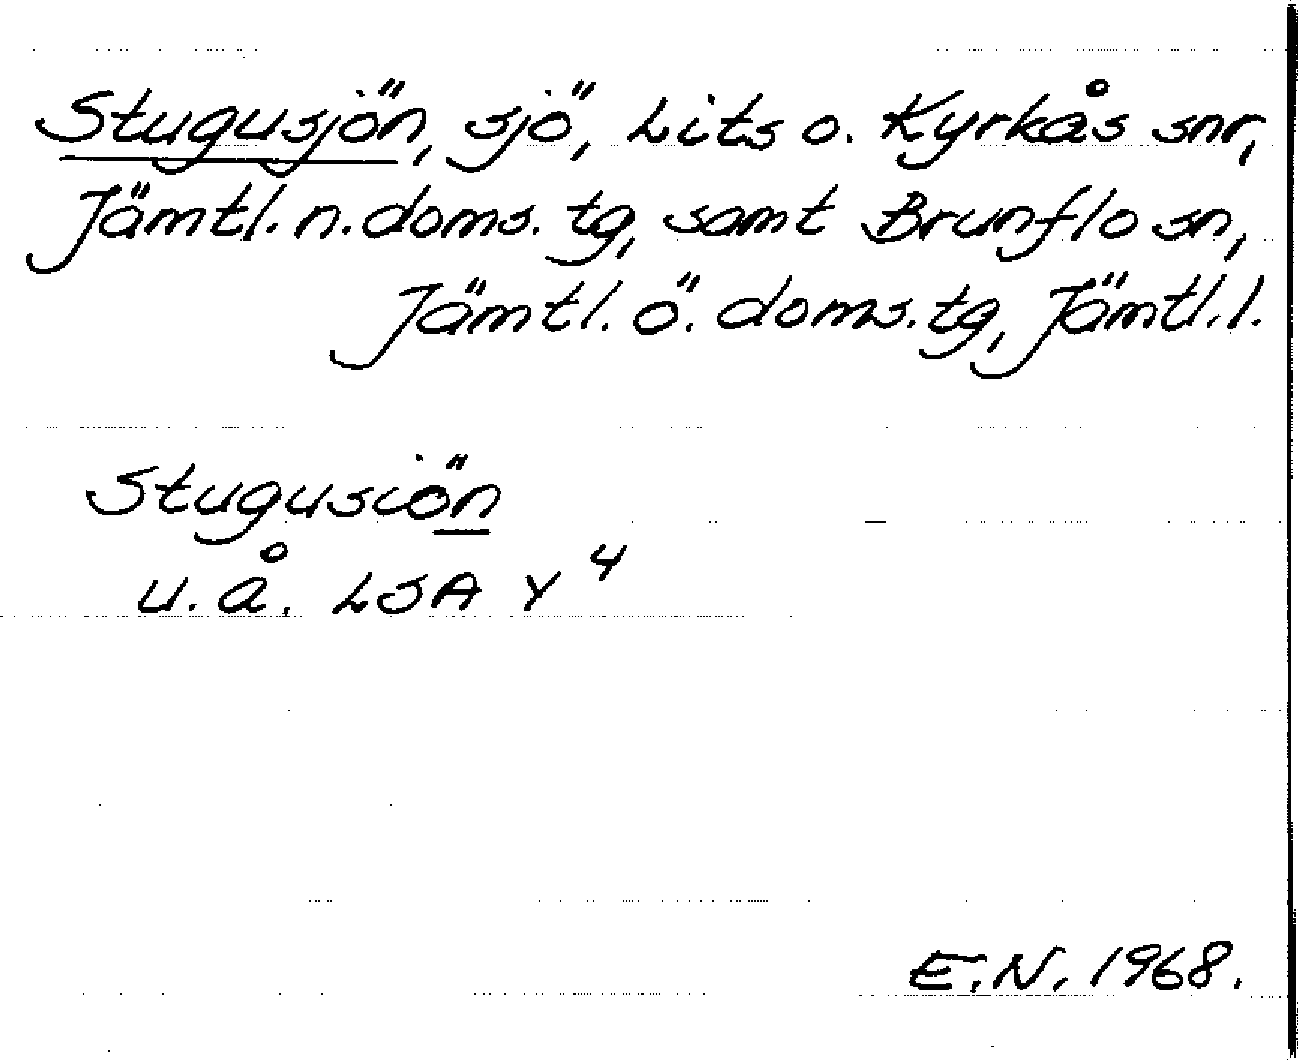 Stugusjön, sjö, Lits o. Kyrkås snr,
Jämtl. n. doms. tg, samt Brunflo sn,
Jämtl. ö. doms. tg, Jämtl. l.
Stugusiön
u. å. LSA Y 4
E.N. 1968.